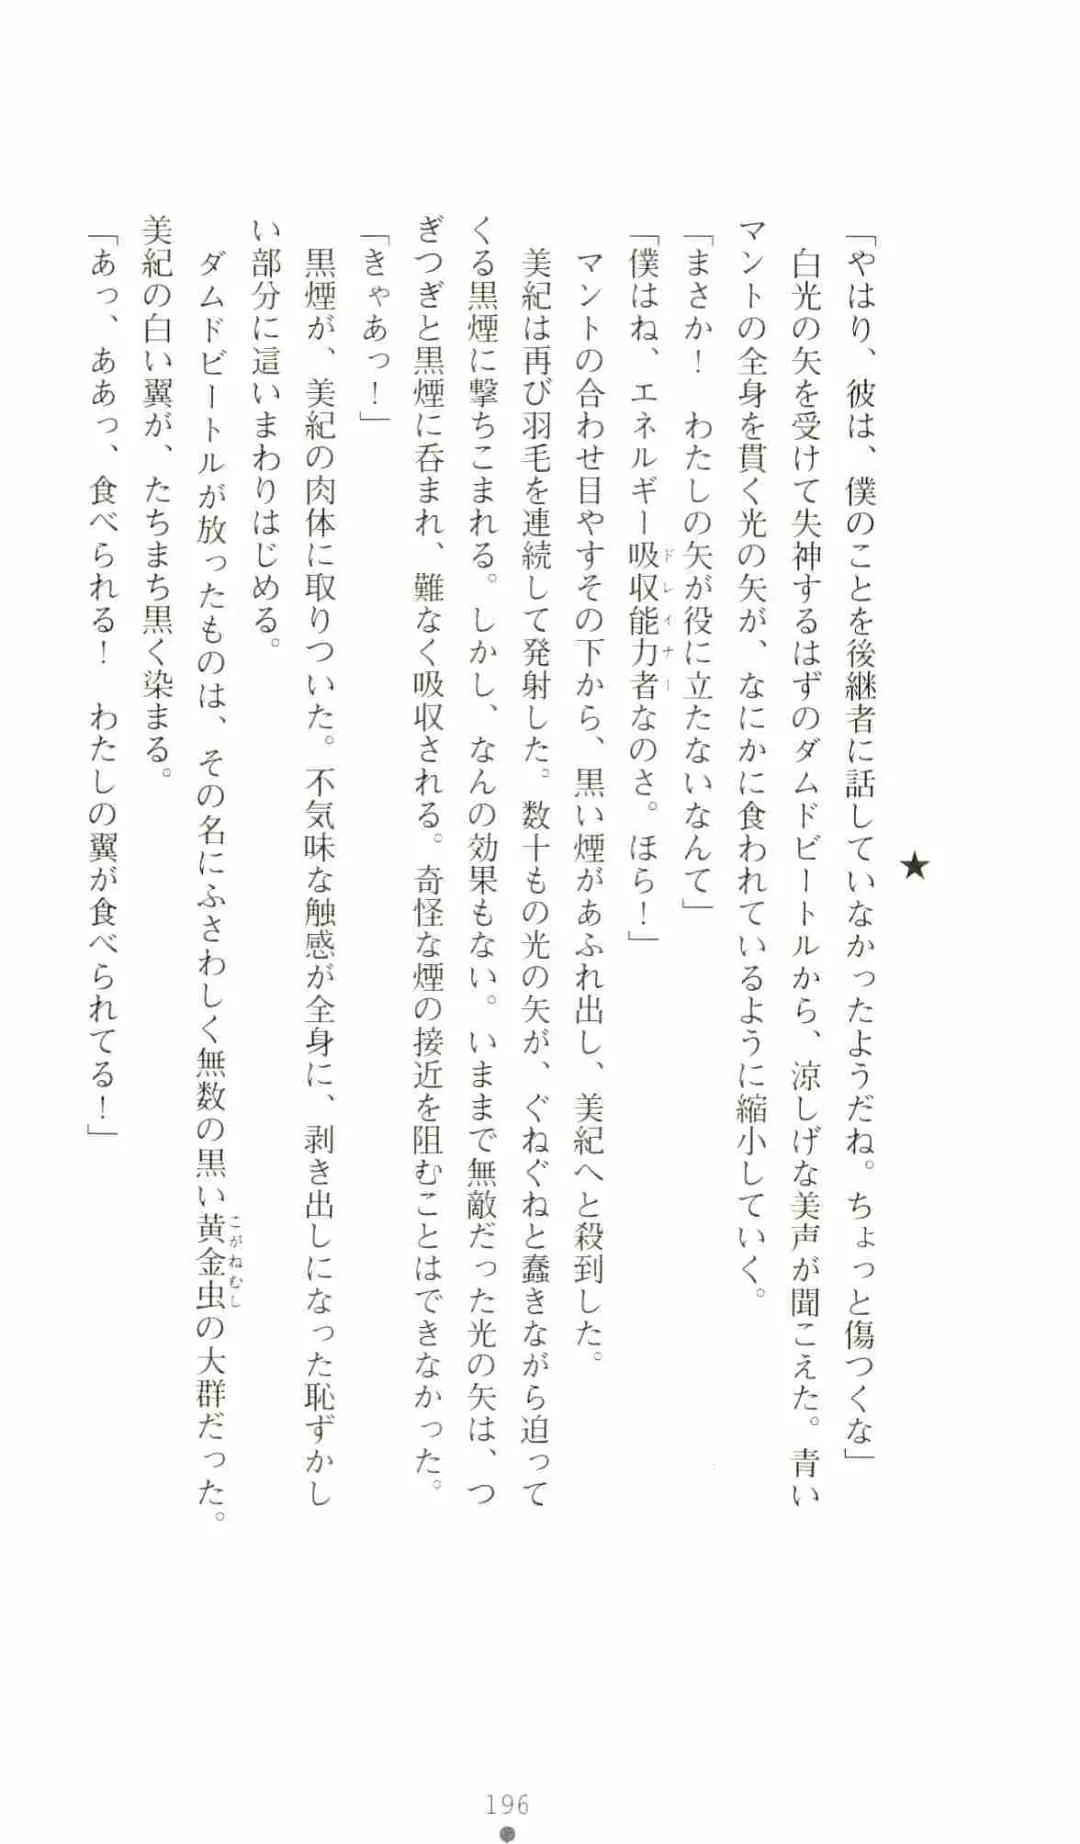 ★
「やはり、彼は、僕のことを後継者に話していなかったようだね。ちょっと傷つくな」
白光の矢を受けて失神するはずのダムドビートルから、涼しげな美声が聞こえた。青い
マントの全身を貫く光の矢が、なにかに食われているように縮小していく。
「まさか！　わたしの矢が役に立たないなんて」
「僕はね、エネルギー吸収能力者なのさ。ほら！」
ドレイナー
マントの合わせ目やすその下から、黒い煙があふれ出し、美紀へと殺到した。
美紀は再び羽毛を連続して発射した。数十もの光の矢が、ぐねぐねと蠢きながら迫って
くる黒煙に撃ちこまれる。しかし、なんの効果もない。いままで無敵だった光の矢は、つ
ぎつぎと黒煙に呑まれ、難なく吸収される。奇怪な煙の接近を阻むことはできなかった。
「きゃあっ！」
黒煙が、美紀の肉体に取りついた。不気味な触感が全身に、剥き出しになった恥ずかし
い部分に這いまわりはじめる。
ダムドビートルが放ったものは、その名にふさわしく無数の黒い黄金虫の大群だった。
こがねむし
美紀の白い翼が、たちまち黒く染まる。
「あっ、ああっ、食べられる！　わたしの翼が食べられてる！」
196